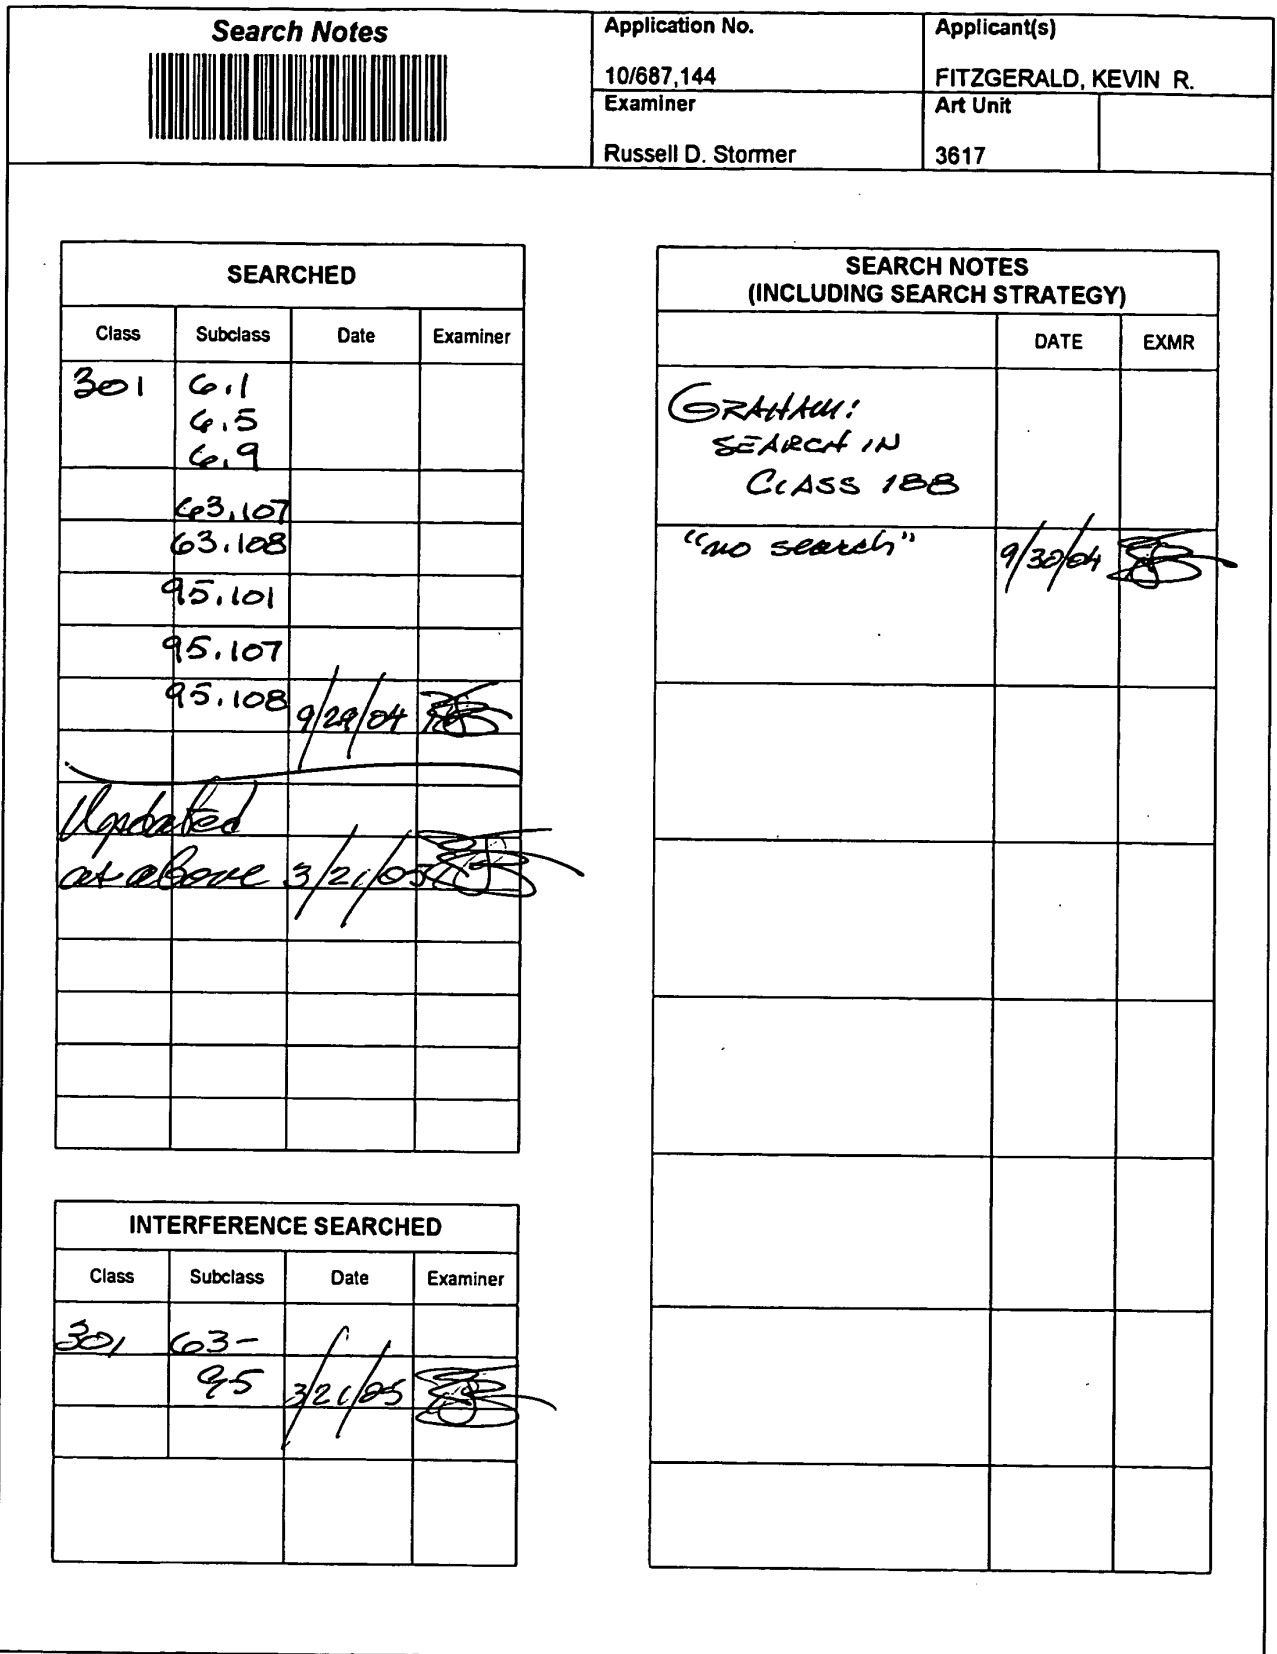 Search Notes
Application No.
10/687,144
Applicant(s)
FITZGERALD, KEVIN R.
Examiner
Russell D. Stormer
Art Unit
3617
SEARCHED
Class Subclass Date Examiner
301 6.1
6.5
6.9
63.107
63.108
95.101
95.107
95.108 9/29/04
Updated
as above 3/21/05
INTERFERENCE SEARCHED
Class Subclass Date Examiner
301 63-
95 3/21/05
SEARCH NOTES
(INCLUDING SEARCH STRATEGY)
DATE EXMR
GRAHAM:
SEARCH IN
CLASS 188
"no search" 9/30/04